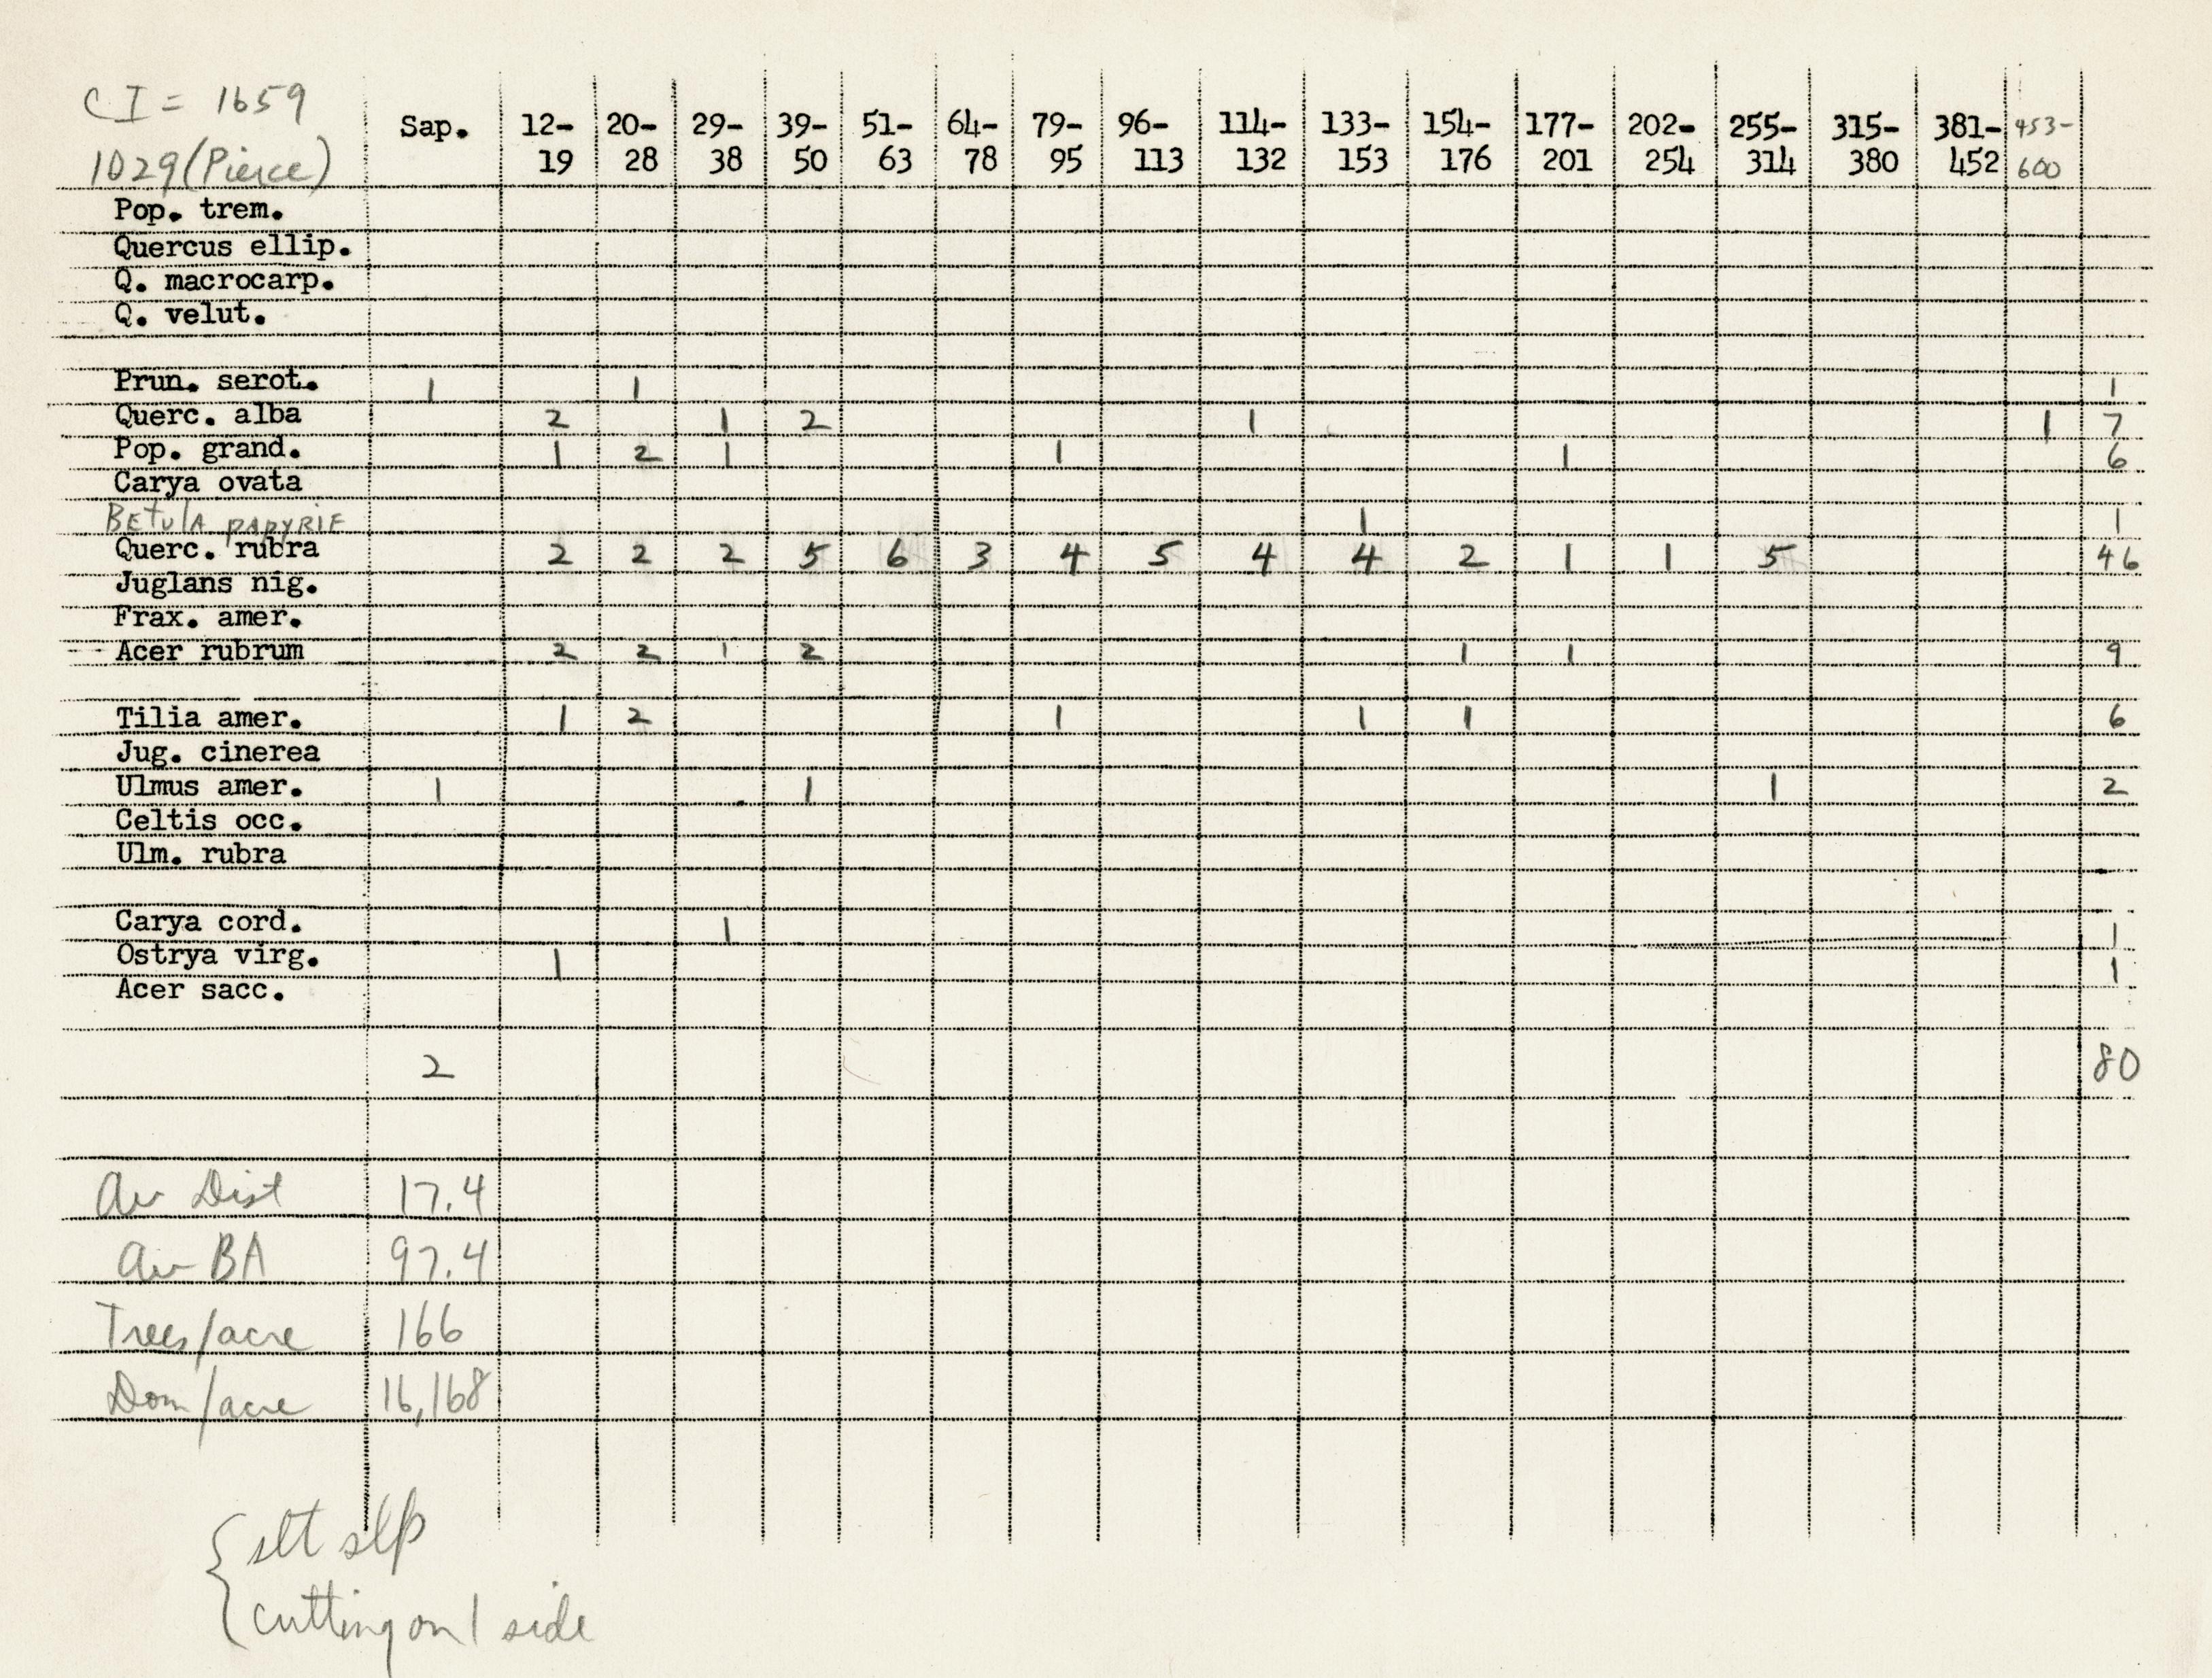 CI = 1659
1029 (Pierce)
Sap. 12-19 20-28 29-38 39-50 51-63 64-78 79-95 96-113 114-132 133-153 154-176 177-201 202-254 255-314 315-380 381-452 453-600
Pop. trem.
Quercus ellip.
Q. macrocarp.
Q. velut.
Prun. serot. 1 1 1
Querc. alba 2 1 2 1 1 7
Pop. grand. 1 2 1 1 1 6
Carya ovata
BEtulA papyRIF 1 1
Querc. rubra 2 2 2 5 6 3 4 5 4 4 2 1 1 5 46
Juglans nig.
Frax. amer.
Acer rubrum 2 2 1 2 1 1 9
Tilia amer. 1 2 1 1 1 6
Jug. cinerea
Ulmus amer. 1 1 1 2
Celtis occ.
Ulm. rubra
Carya cord. 1 1
Ostrya virg. 1 1
Acer sacc.
2 80
Av Dist 17.4
Av BA 97.4
Trees/acre 166
Dom/acre 16,168
slt slp
cutting on 1 side